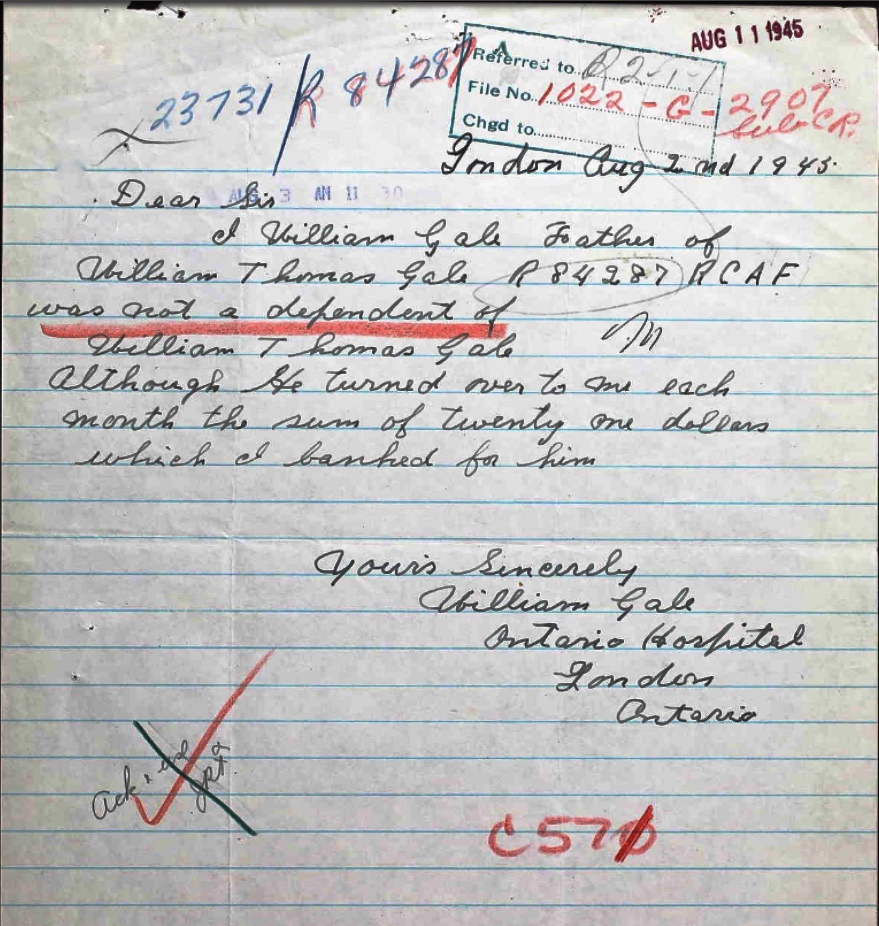 AUG 11 1945
Referred to R 2-1-1
File No. 1022-G-2907
Chgd to
23731 / R 84287
London Aug 2nd 1945.
AUG 3 AM 11 30
Dear Sir
I William Gale Father of
William Thomas Gale R 84287 RCAF
was not a dependent of
William Thomas Gale
Although He turned over to me each
month the sum of twenty one dollars
which I banked for him
Yours Sincerely
William Gale
Ontario Hospital
London
Ontario
Ack
C57